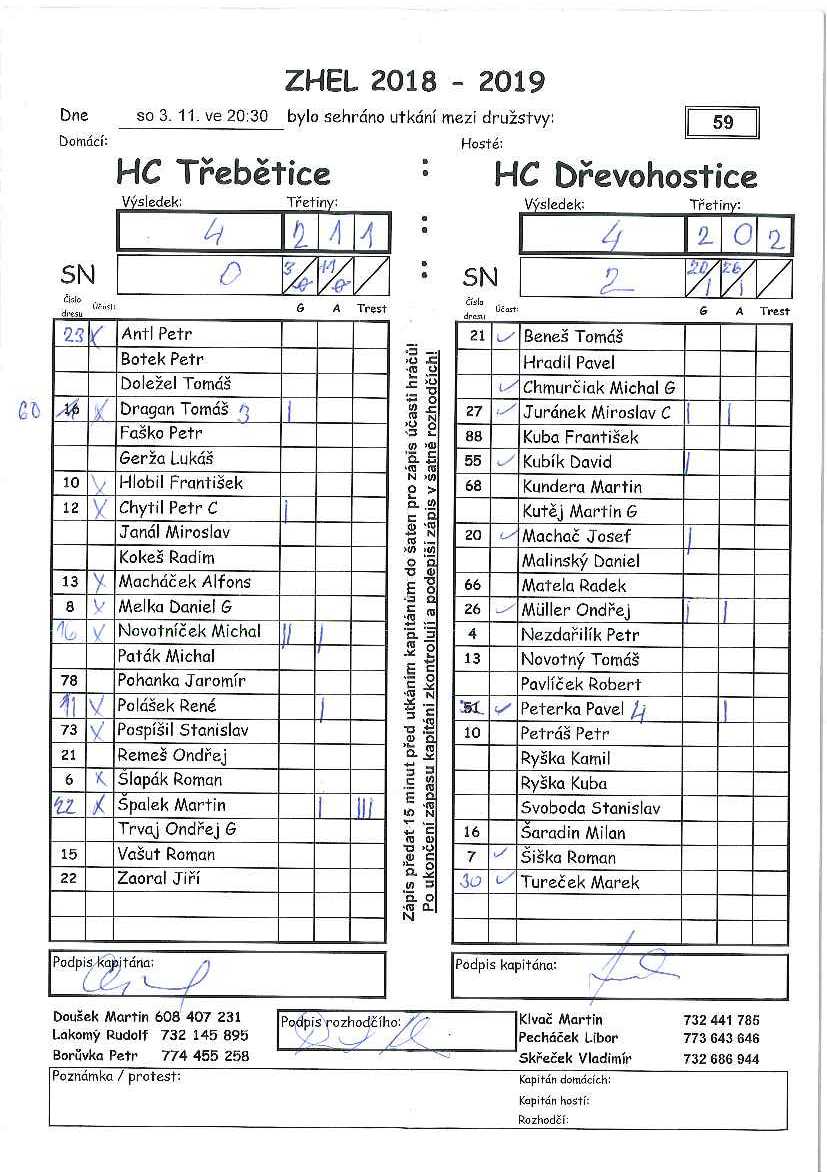 ZHEL 2018 - 2019
Dne so 3. 11. ve 20:30 bylo sehráno utkání mezi družstvy: 59
Domácí: Hosté:
HC Třebětice : HC Dřevohostice
Výsledek: Třetiny: : Výsledek: Třetiny:
4 2 1 1 4 2 0 2
SN 0 3/0 11/0 / : SN 2 20/1 26/1 /
Číslo dresu Účast: G A Trest Číslo dresu Účast: G A Trest
23 X Antl Petr
Botek Petr
Doležel Tomáš
60 16 X Dragan Tomáš 3 |
Faško Petr
Gerža Lukáš
10 X Hlobil František
12 X Chytil Petr C |
Janál Miroslav
Kokeš Radim
13 X Macháček Alfons
8 X Melka Daniel G
16 X Novotníček Michal || |
Paták Michal
78 Pohanka Jaromír
11 X Polášek René |
73 X Pospíšil Stanislav
21 Remeš Ondřej
6 X Šlapák Roman
22 X Špalek Martin | |||
Trvaj Ondřej G
15 Vašut Roman
22 Zaoral Jiří
Zápis předat 15 minut před utkáním kapitánům do šaten pro zápis účasti hráčů!
Po ukončení zápasu kapitáni zkontrolují a podepíší zápis v šatně rozhodčích!
21 ✓ Beneš Tomáš
Hradil Pavel
✓ Chmurčiak Michal G
27 ✓ Juránek Miroslav C | |
88 Kuba František
55 ✓ Kubík David |
68 Kundera Martin
Kutěj Martin G
20 ✓ Machač Josef |
Malinský Daniel
66 Matela Radek
26 ✓ Müller Ondřej | |
4 Nezdařilík Petr
13 Novotný Tomáš
Pavlíček Robert
51 ✓ Peterka Pavel 4 |
10 Petráš Petr
Ryška Kamil
Ryška Kuba
Svoboda Stanislav
16 Šaradin Milan
7 ✓ Šiška Roman
30 ✓ Tureček Marek
Podpis kapitána: Podpis kapitána:
Doušek Martin 608 407 231
Lakomý Rudolf 732 145 895
Borůvka Petr 774 455 258
Podpis rozhodčího:
Klvač Martin 732 441 785
Pecháček Libor 773 643 646
Skřeček Vladimír 732 686 944
Poznámka / protest:
Kapitán domácích:
Kapitán hostí:
Rozhodčí: